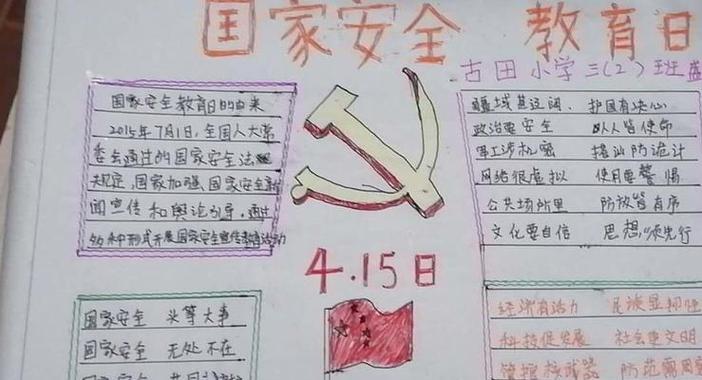 国家安全 教育日
古田小学三(2)班
国家安全教育日的由来
2015年7月1日,全国人大常
委会通过的国家安全法
规定,国家加强国家安全新
闻宣传和舆论引导,通过
多种形式开展国家安全宣传教育活动
疆域甚辽阔、护国有决心
政治要安全 人人皆使命
军工涉机密 提防诡计
网络很虚拟 使用要警惕
公共场所里 防放皆有序
文化要自信 思想须先行
4.15日
国家安全 头等大事
国家安全 无处不在
国家安全
经济有活力 民族显
科技促发展 社会更文明
管理核武器 防范需